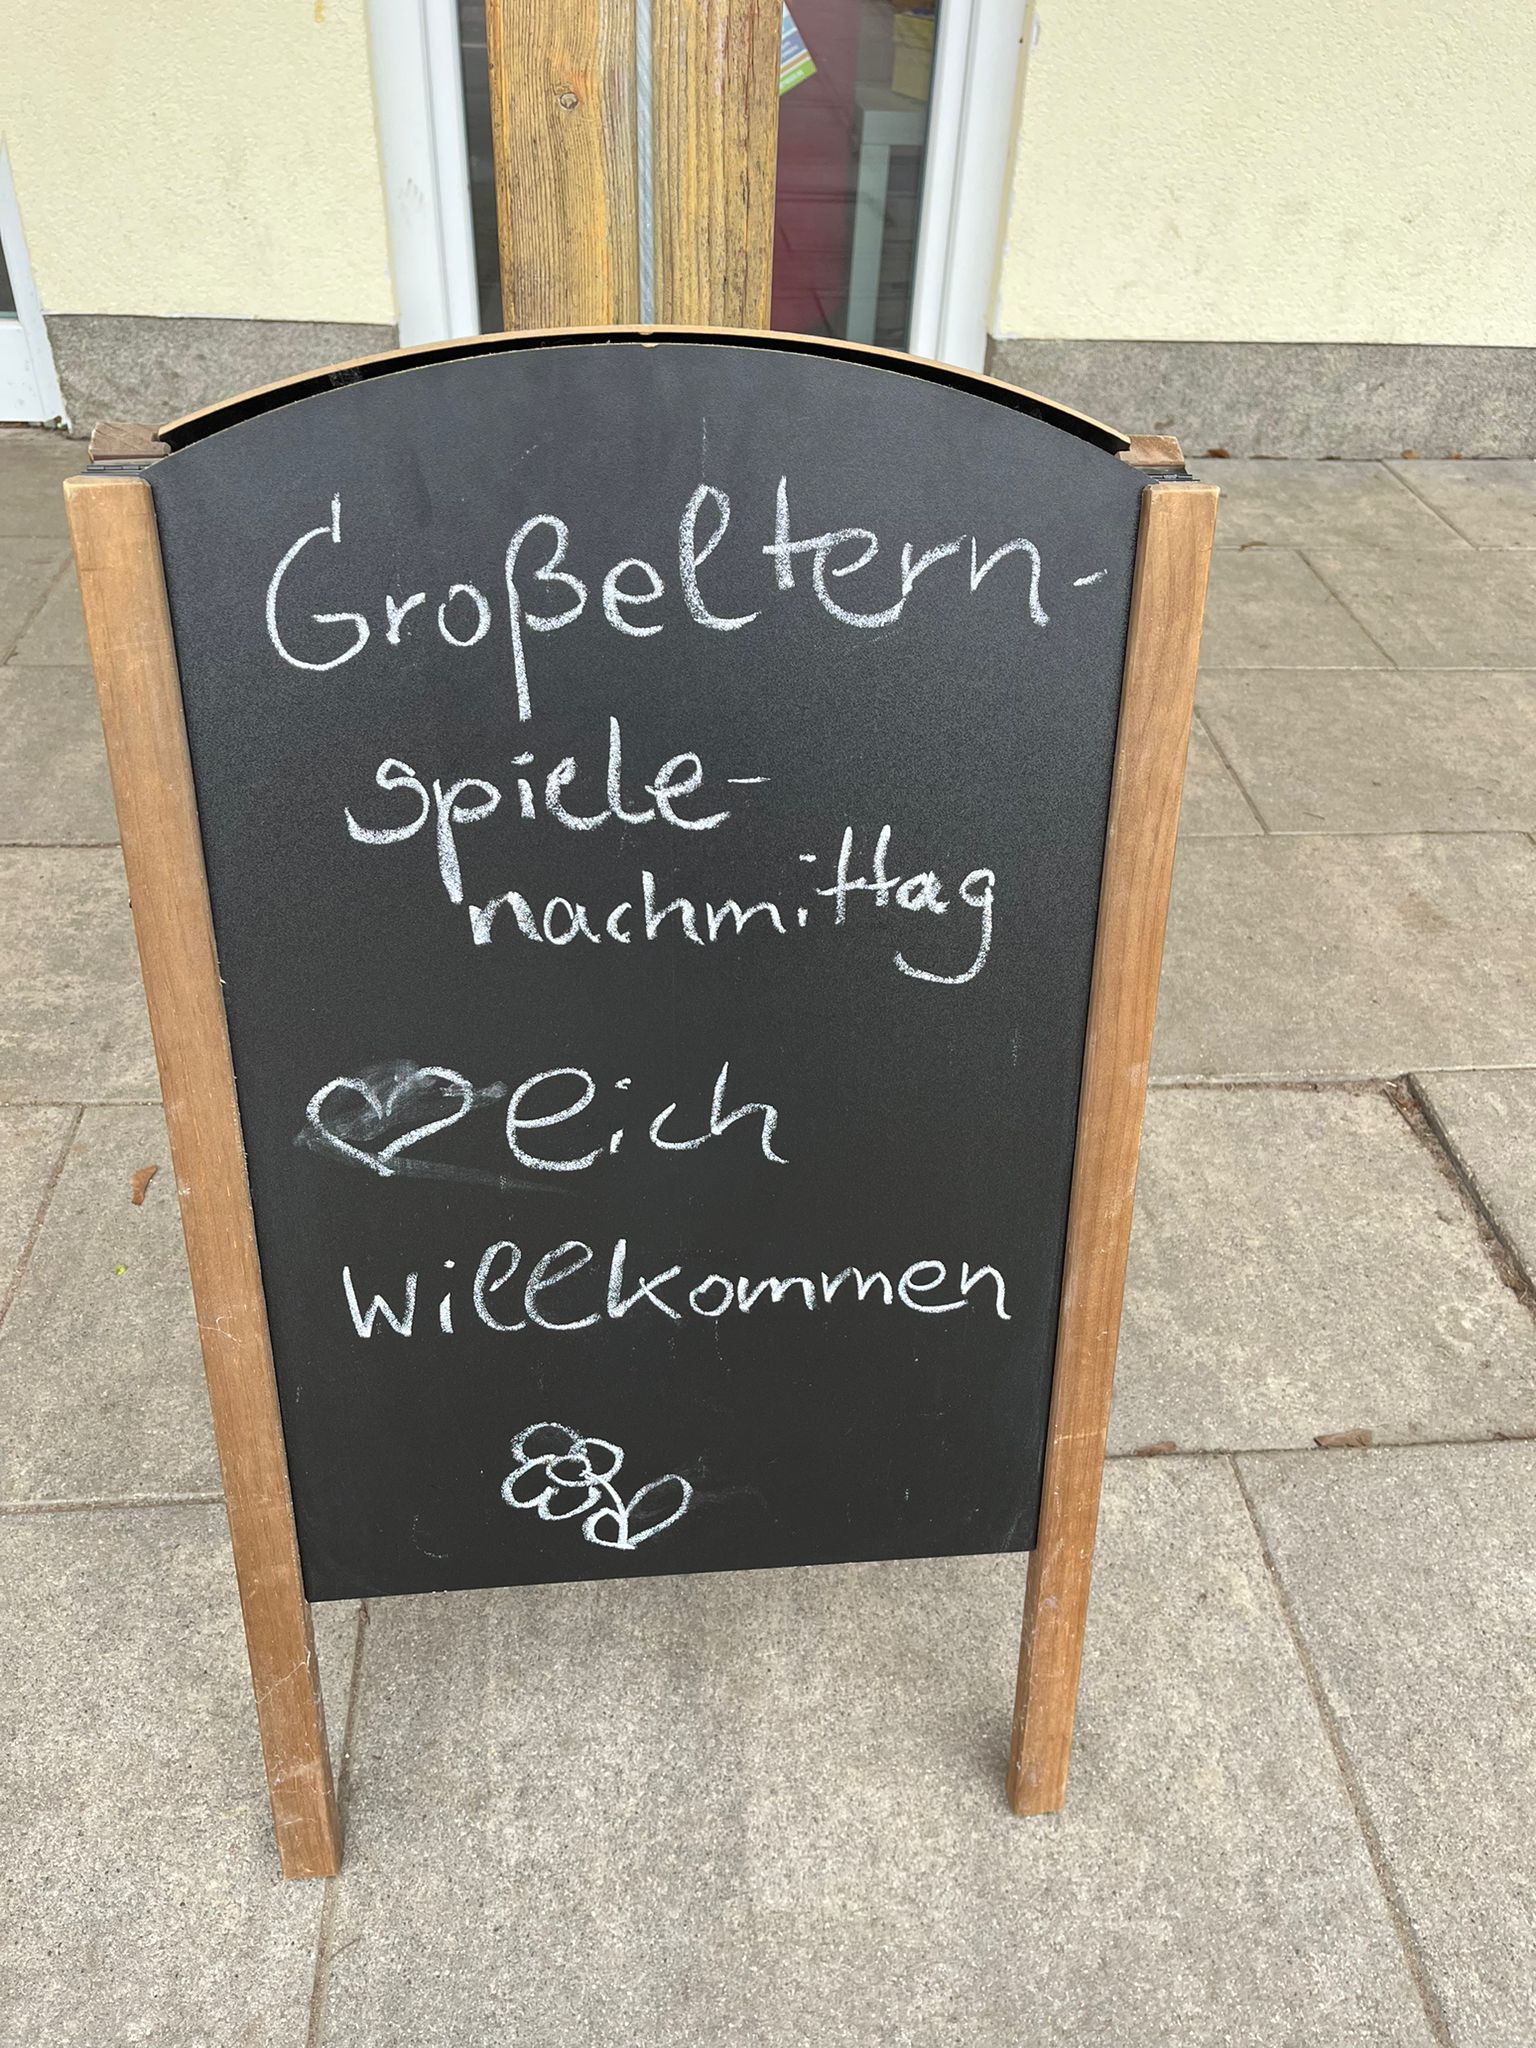 Großeltern-
spiele-
nachmittag
♡eich
willkommen